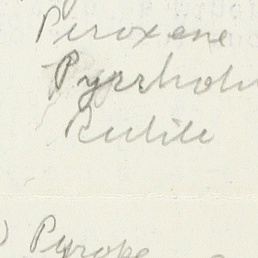 Piroxene
Pyrrhoh
Rutile
) Pyrope